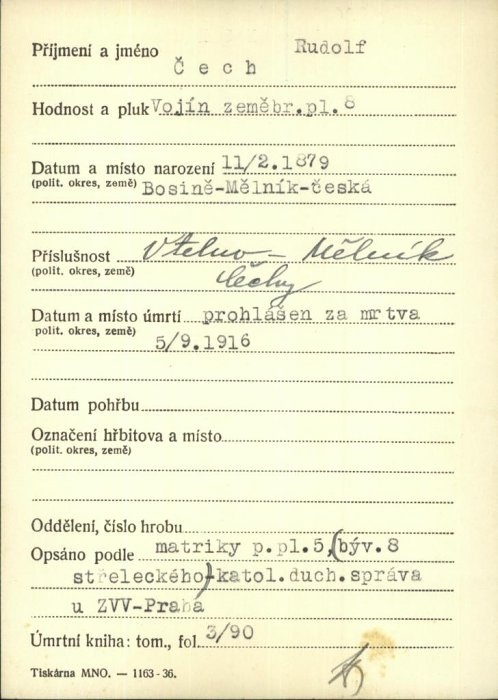 Příjmení a jméno Rudolf
Čech
Hodnost a pluk Vojín zeměbr.pl.8
Datum a místo narození 11/2.1879
(polit. okres, země) Bosině-Mělník-česká
Příslušnost Vtelno - Mělník
(polit. okres, země) Čechy
Datum a místo úmrtí prohlášen za mrtva
polit. okres, země) 5/9.1916
Datum pohřbu
Označení hřbitova a místo
(polit. okres, země)
Oddělení, číslo hrobu
Opsáno podle matriky p.pl.5,(býv.8
střeleckého)-katol.duch.správa
u ZVV-Praha
Úmrtní kniha: tom., fol. 3/90
Tiskárna MNO. — 1163-36.